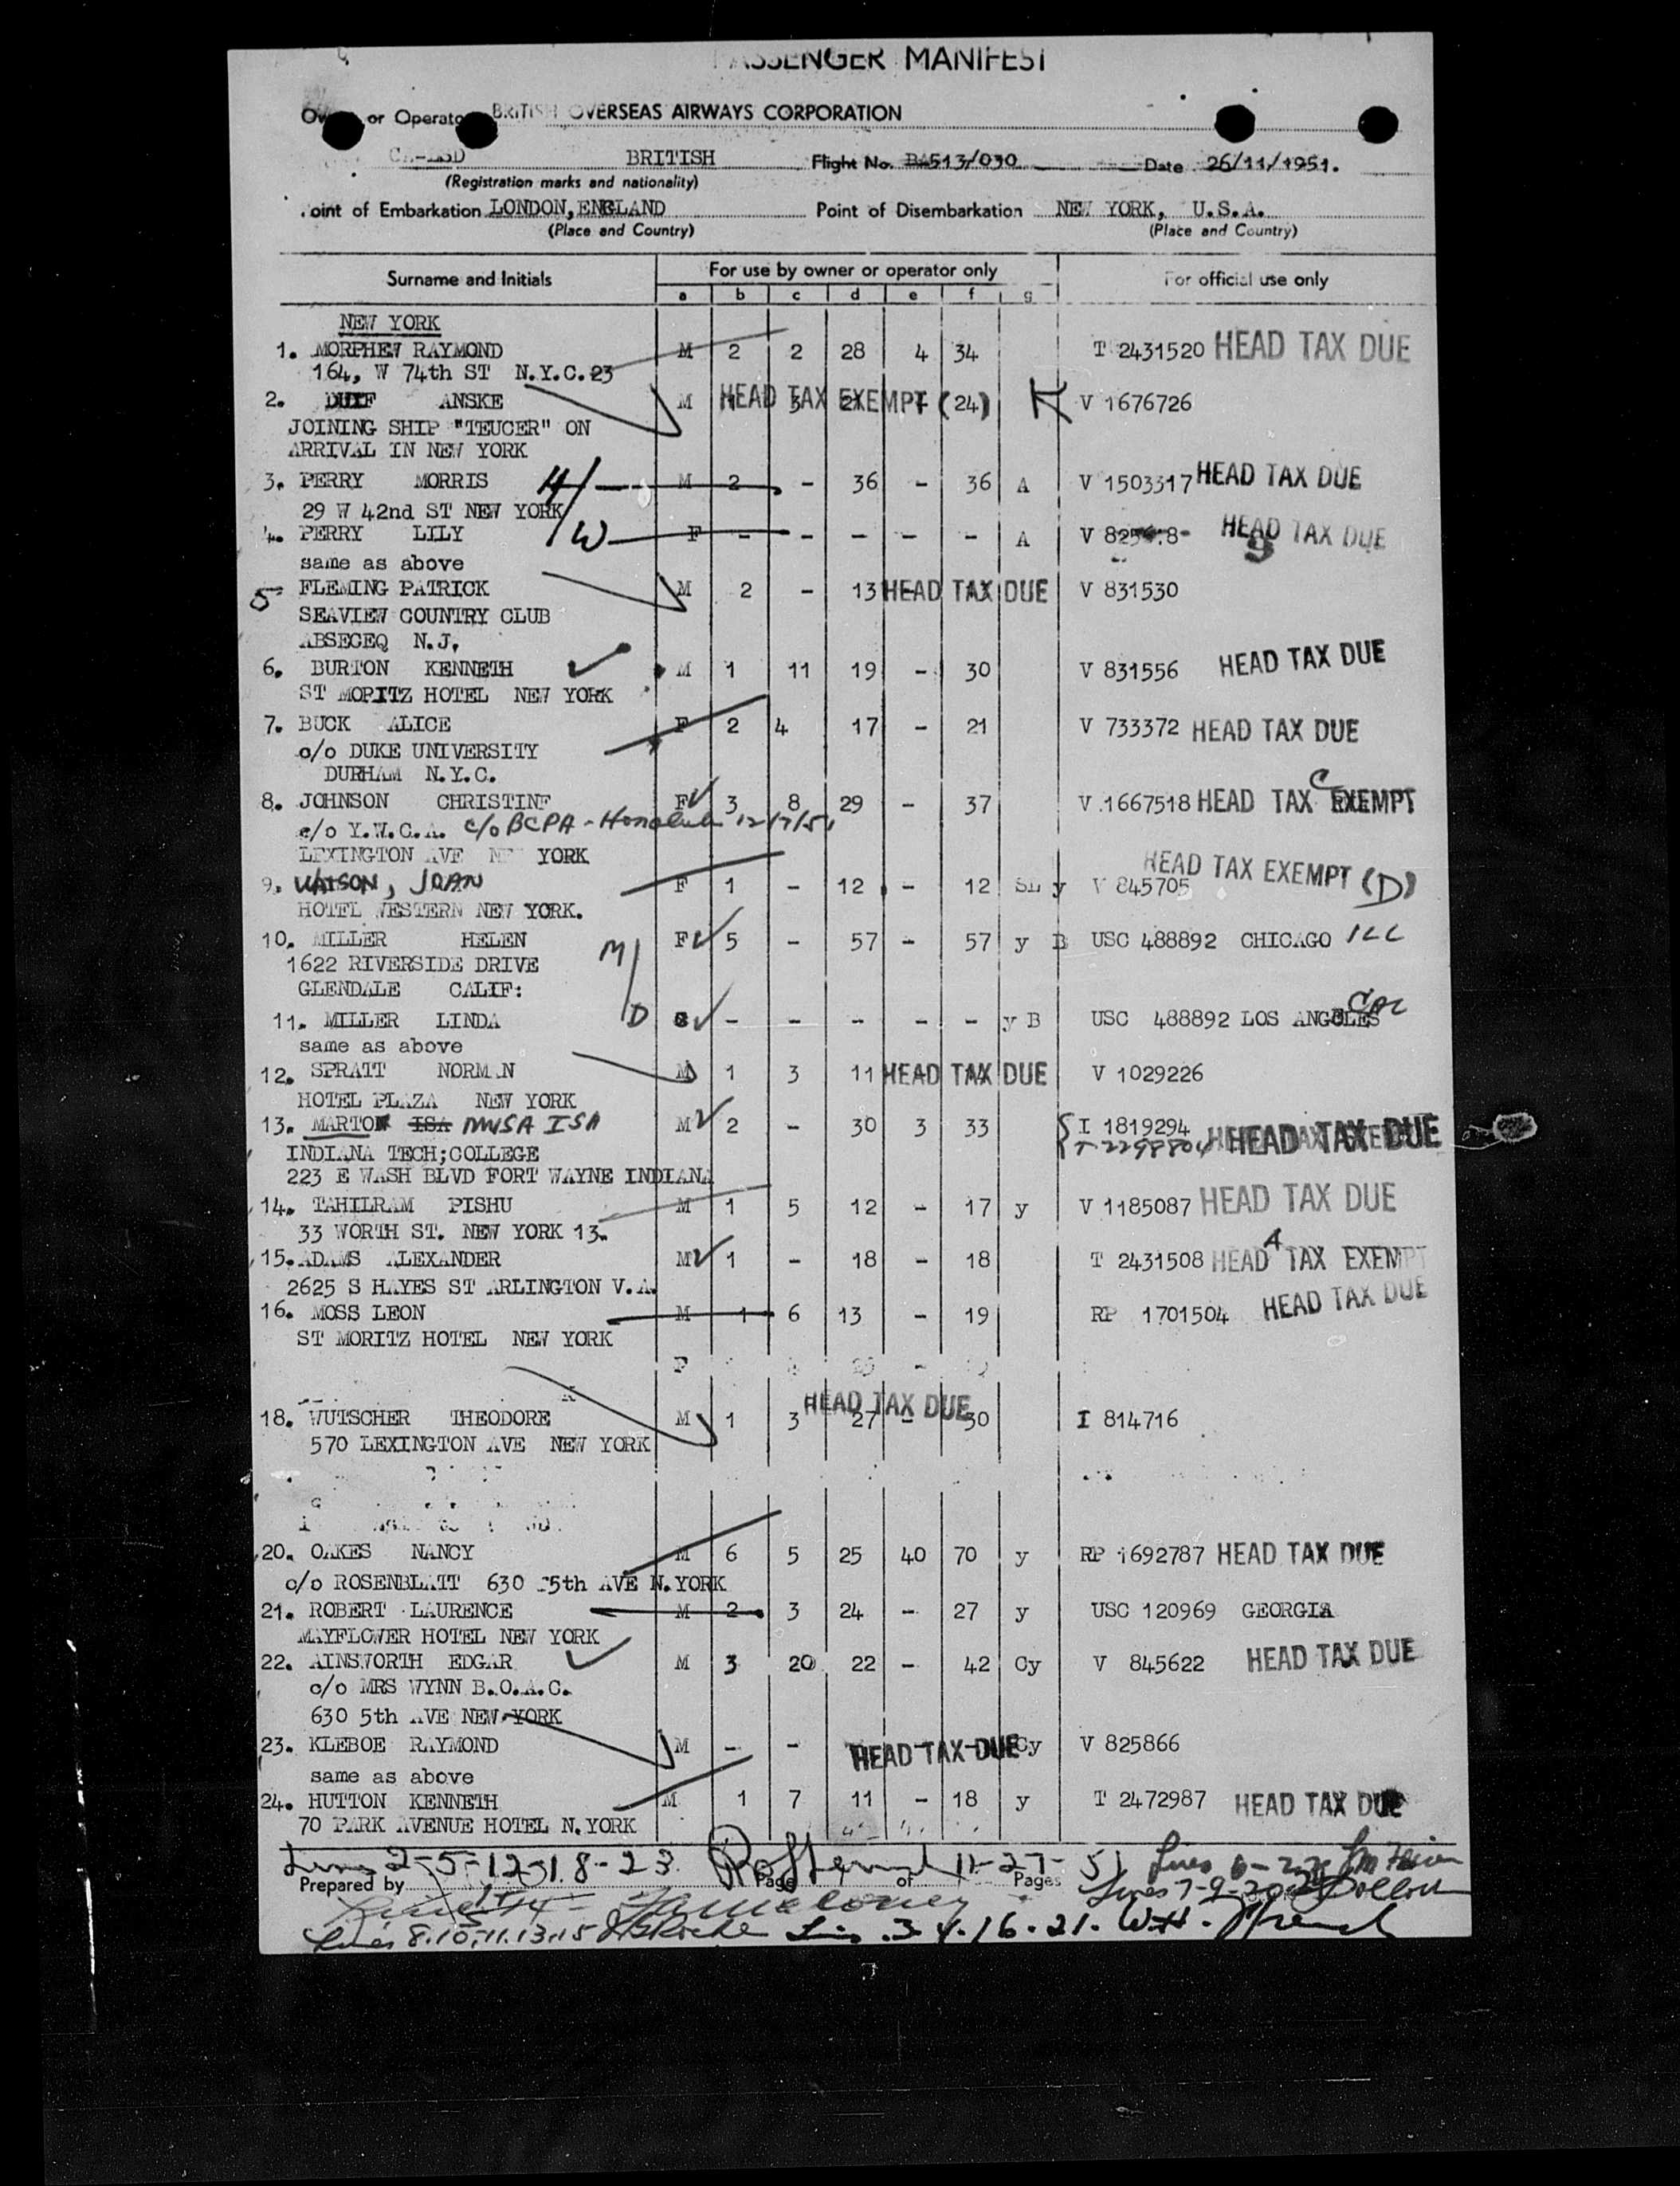 PASSENGER MANIFEST
Owner or Operator BRITISH OVERSEAS AIRWAYS CORPORATION
BRITISH Flight No. BA513/030 Date 26/11/1951.
(Registration marks and nationality)
Point of Embarkation LONDON, ENGLAND Point of Disembarkation NEW YORK, U.S.A.
(Place and Country) (Place and Country)
Surname and Initials For use by owner or operator only For official use only
a b c d e f g
NEW YORK
1. MORPHEW RAYMOND M 2 2 28 4 34 T 2431520 HEAD TAX DUE
164, W 74th ST N.Y.C.23
2. DUIF ANSKE M HEAD TAX EXEMPT (24) V 1676726
JOINING SHIP "TEUCER" ON
ARRIVAL IN NEW YORK
3. PERRY MORRIS H/ M 2 - 36 - 36 A V 1503317 HEAD TAX DUE
29 W 42nd ST NEW YORK
4. PERRY LILY /W F - - - - - A HEAD TAX DUE
same as above
5 FLEMING PATRICK M 2 - 13 HEAD TAX DUE V 831530
SEAVIEW COUNTRY CLUB
ABSECEQ N.J.
6. BURTON KENNETH M 1 11 19 - 30 V 831556 HEAD TAX DUE
ST MORITZ HOTEL NEW YORK
7. BUCK ALICE F 2 4 17 - 21 V 733372 HEAD TAX DUE
c/o DUKE UNIVERSITY
DURHAM N.Y.C.
8. JOHNSON CHRISTINE F 3 8 29 - 37 V 1667518 HEAD TAX EXEMPT C
c/o Y.W.C.A. c/o BCPA - Honolulu 12/7/51
LEXINGTON AVE NEW YORK
9. WATSON, JOAN F 1 - 12 - 12 y V 845705 HEAD TAX EXEMPT (D)
HOTEL WESTERN NEW YORK.
10. MILLER HELEN M/ F 5 - 57 - 57 y B USC 488892 CHICAGO ILL
1622 RIVERSIDE DRIVE
GLENDALE CALIF:
11. MILLER LINDA /D - - - - - y B USC 488892 LOS ANGELES CAL
same as above
12. SPRATT NORMAN M 1 3 11 HEAD TAX DUE V 1029226
HOTEL PLAZA NEW YORK
13. MARTON ISA MUSA ISA M 2 - 30 3 33 I 1819294 HEAD TAX DUE
T-2298804
INDIANA TECH;COLLEGE
223 E WASH BLVD FORT WAYNE INDIANA
14. TAHILRAM PISHU M 1 5 12 - 17 y V 1185087 HEAD TAX DUE
33 WORTH ST. NEW YORK 13.
15. ADAMS ALEXANDER M 1 - 18 - 18 T 2431508 HEAD TAX EXEMPT A
2625 S HAYES ST ARLINGTON V.A.
16. MOSS LEON M 1 6 13 - 19 RP 1701504 HEAD TAX DUE
ST MORITZ HOTEL NEW YORK
18. WUTSCHER THEODORE M 1 3 27 - 30 HEAD TAX DUE I 814716
570 LEXINGTON AVE NEW YORK
20. OAKES NANCY M 6 5 25 40 70 y RP 1692787 HEAD TAX DUE
c/o ROSENBLATT 630 5th AVE N.YORK
21. ROBERT LAURENCE M 2 3 24 - 27 y USC 120969 GEORGIA
MAYFLOWER HOTEL NEW YORK
22. AINSWORTH EDGAR M 3 20 22 - 42 Cy V 845622 HEAD TAX DUE
c/o MRS WYNN B.O.A.C.
630 5th AVE NEW YORK
23. KLEBOE RAYMOND M - - HEAD TAX DUE Cy V 825866
same as above
24. HUTTON KENNETH M 1 7 11 - 18 y T 2472987 HEAD TAX DUE
70 PARK AVENUE HOTEL N.YORK
Lines 2-5-12-18-23 11-27-51
Prepared by Page of Pages
Lines 8.10.11.13.15 Lines 3.4.16.21. W.H. French